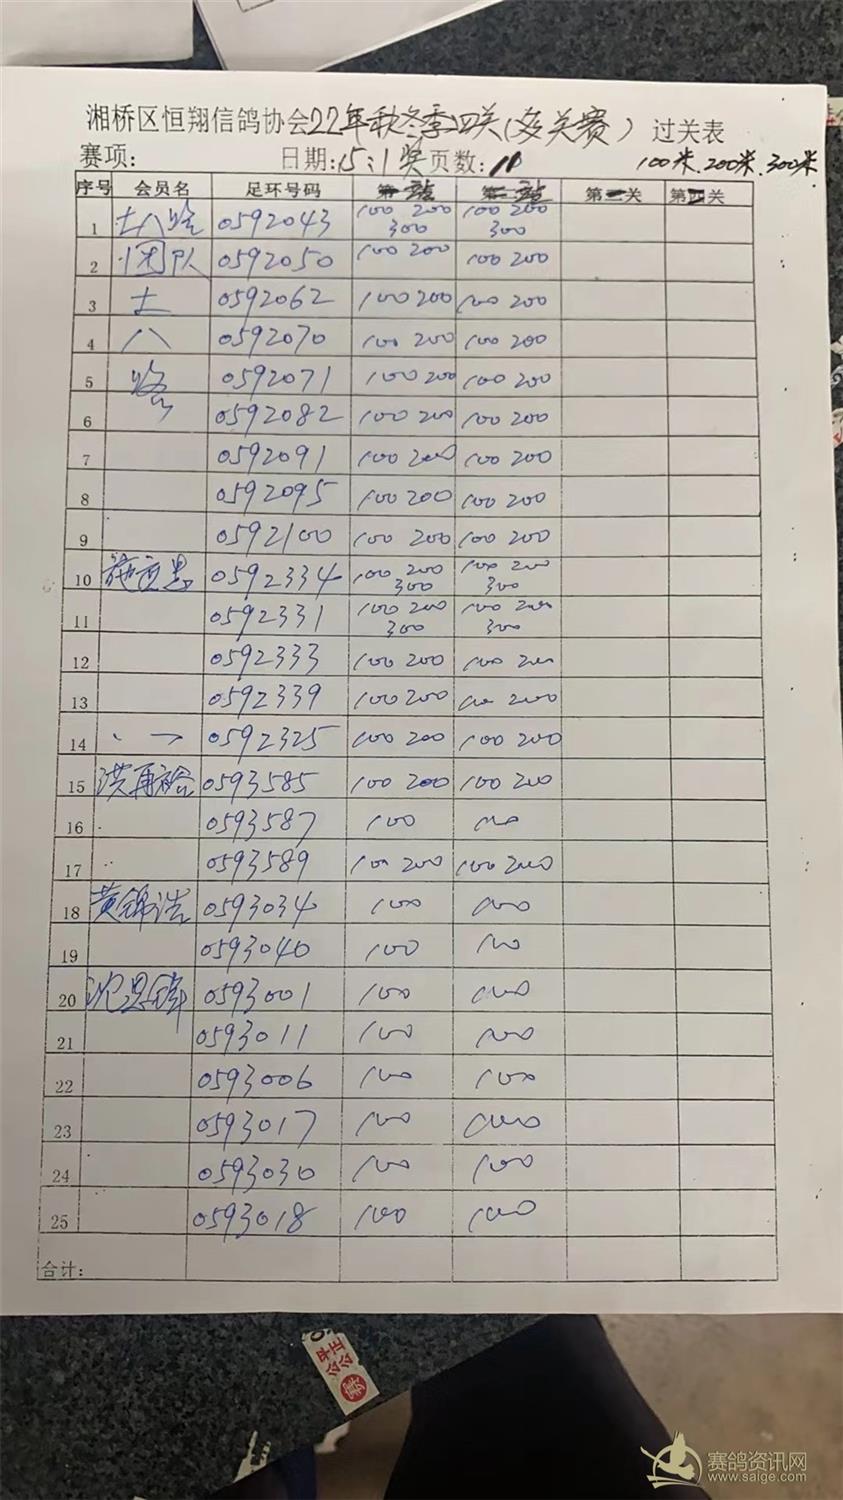 湘桥区恒翔信鸽协会22年秋冬季四关(多关赛)过关表
赛项: 日期:15:1奖页数: 100米.200米.300米
序号 会员名 足环号码 第一站 第二站 第三关 第四关
1 十八路 0592043 100 200 300 100 200 300
2 团队 0592050 100 200 100 200
3 十 0592062 100 200 100 200
4 八 0592070 100 200 100 200
5 路 0592071 100 200 100 200
6 0592082 100 200 100 200
7 0592091 100 200 100 200
8 0592095 100 200 100 200
9 0592100 100 200 100 200
10 0592334 100 200 300 100 200 300
11 0592331 100 200 300 100 200 300
12 0592333 100 200 100 200
13 0592339 100 200 100 200
14 0592325 100 200 100 200
15 洪再裕 0593585 100 200 100 200
16 0593587 100 100
17 0593589 100 200 100 200
18 黄锦浩 0593034 100 100
19 0593040 100 100
20 沈思锋 0593001 100 100
21 0593011 100 100
22 0593006 100 100
23 0593017 100 100
24 0593030 100 100
25 0593018 100 100
合计:
公平公正
赛鸽资讯网
www.saige.com